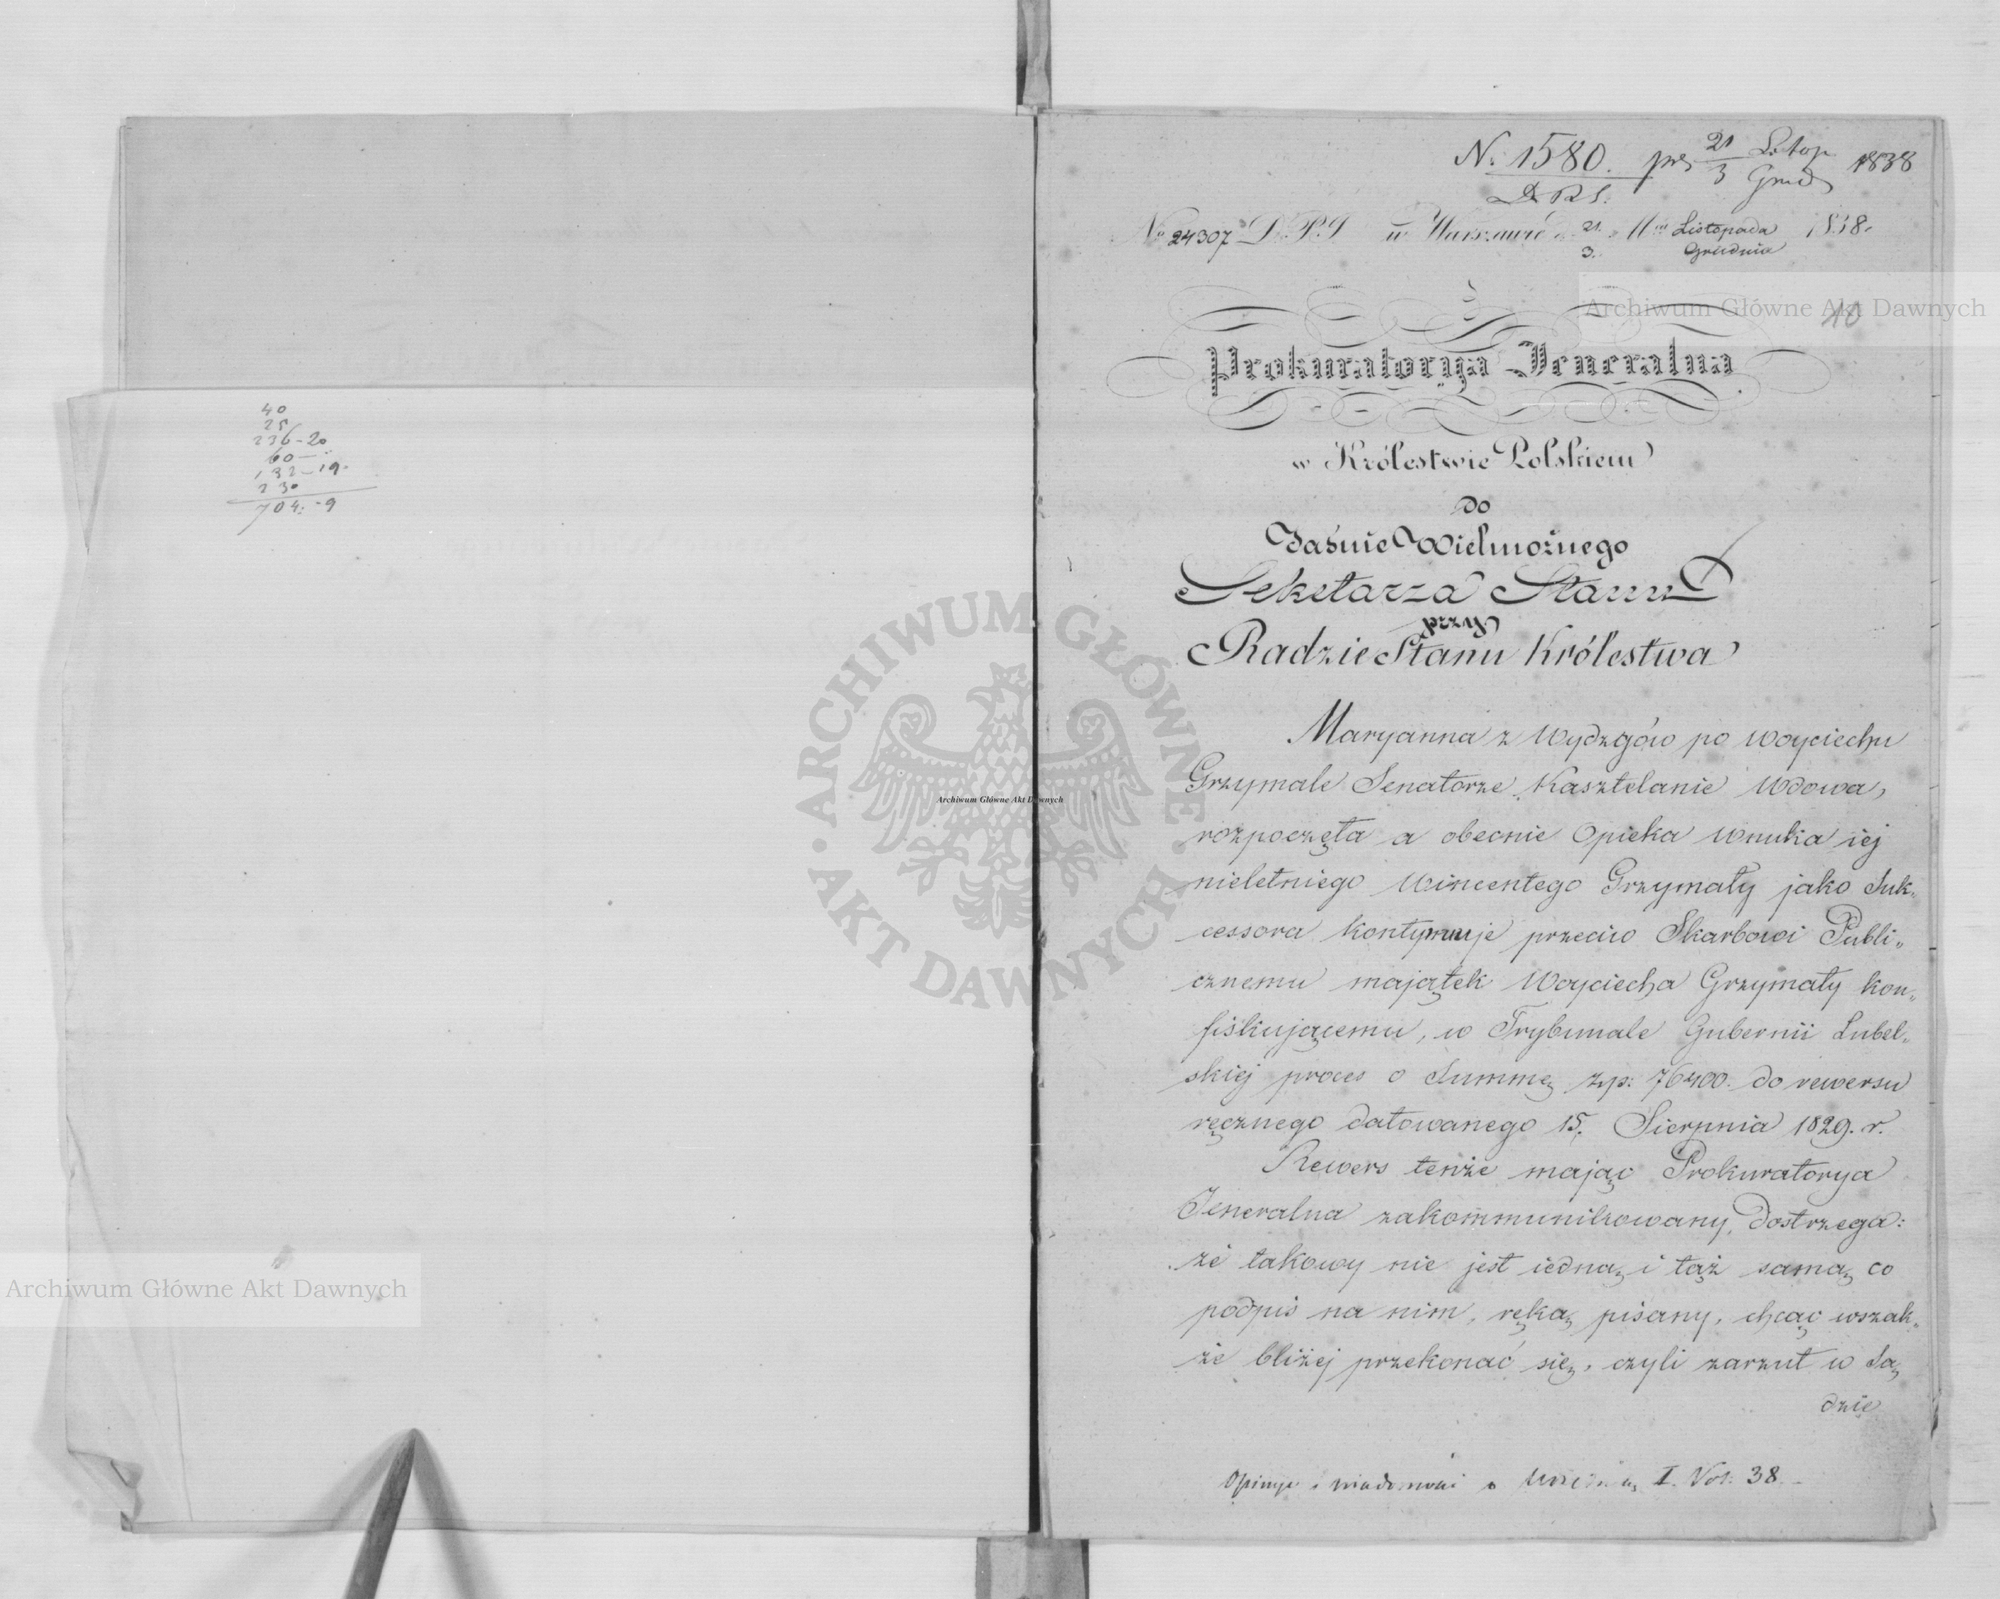 40
25
236-20
60-
132-19.
230
704:-9
N. 1580. prs 21/3 Listop/Grud 1838
D. R. S.
No 24307 D. P. J w Warszawie d. 21/3. Mca Listopada/Grudnia 1838.
Archiwum Główne Akt Dawnych
10
Prokuratorya Jeneralna
w Królestwie Polskiem
do
Jaśnie Wielmożnego
Sekretarza Stanu
przy
Radzie Stanu Królestwa
Maryanna z Wydzgów po Woyciechu
Grzymale Senatorze Kasztelanie Wdowa,
rozpoczęła a obecnie Opieka Wnuka iej
nieletniego Wincentego Grzymały jako Suk-
cessora kontynuuje przeciw Skarbowi Publi-
cznemu majątek Woyciecha Grzymały kon-
fiskującemu, w Trybunale Gubernii Lubel-
skiej proces o Summę zp: 76400. do rewersu
ręcznego datowanego 15. Sierpnia 1829. r.
Rewers tenże mając Prokuratorya
Jeneralna zakommunikowany, dostrzega:
że takowy nie jest iedną i tąż samą co
podpis na nim, ręką pisany, chcąc wszak-
że bliżej przekonać się, czyli zarzut w Są
dzie
Opinije i wiadomości I. Vol: 38.
ARCHIWUM GŁÓWNE
AKT DAWNYCH
Archiwum Główne Akt Dawnych
Archiwum Główne Akt Dawnych